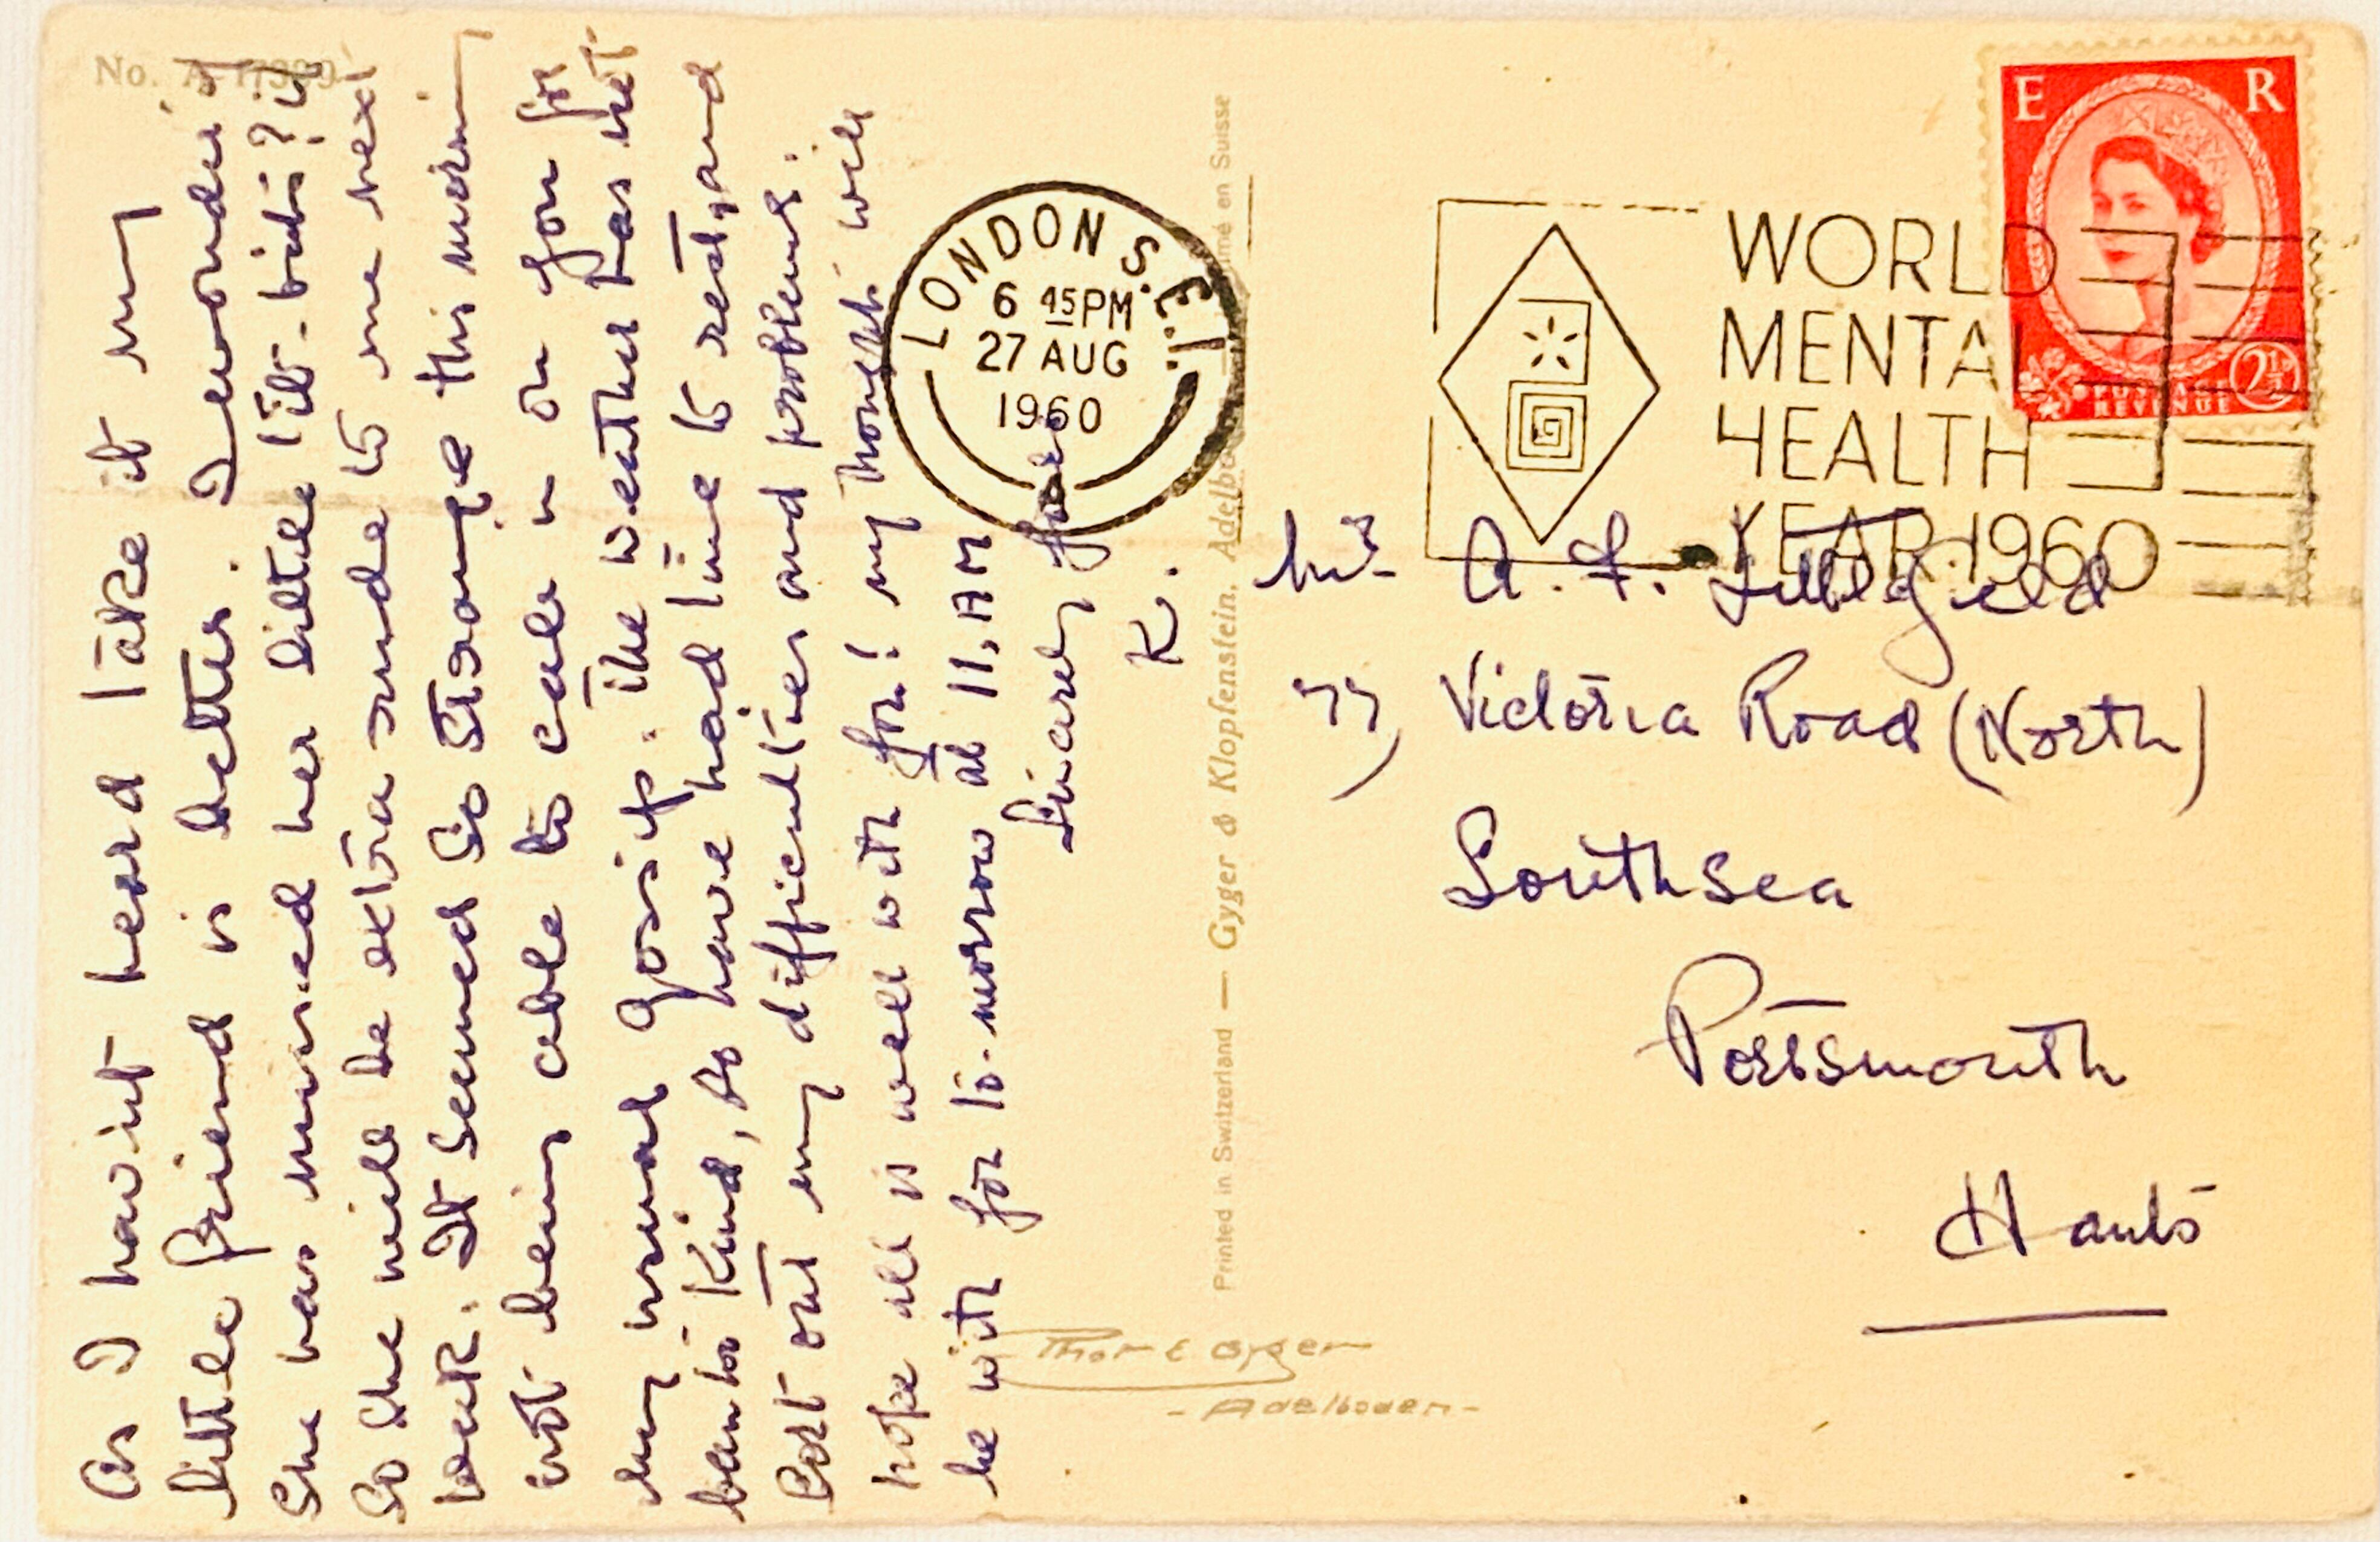 No. A 11380
As I havint heard I take it my
little friend is better. I wonder if
She has missed her little tit-bits? if
So She will be extra rude to me next
week. It seemed so strange this morning
not being able to call in on you for
my usual gossip. The weather has not
been too kind, so have had time to rest, and
sort out my difficulties and problems.
hope all is well with you! my thoughts will
be with you to-morrow at 11, AM
Sincerely yours
K.
Printed in Switzerland — Gyger & Klopfenstein, Adelboden — Imprimé en Suisse
Thor E Gyger
- Adelboden -
LONDON S.E.1.
6 45PM
27 AUG
1960
WORLD
MENTAL
HEALTH
YEAR 1960
E R
POSTAGE
REVENUE
2½D
Mrs A. F. Littlefield
77 Victoria Road (North)
Southsea
Portsmouth
Hants